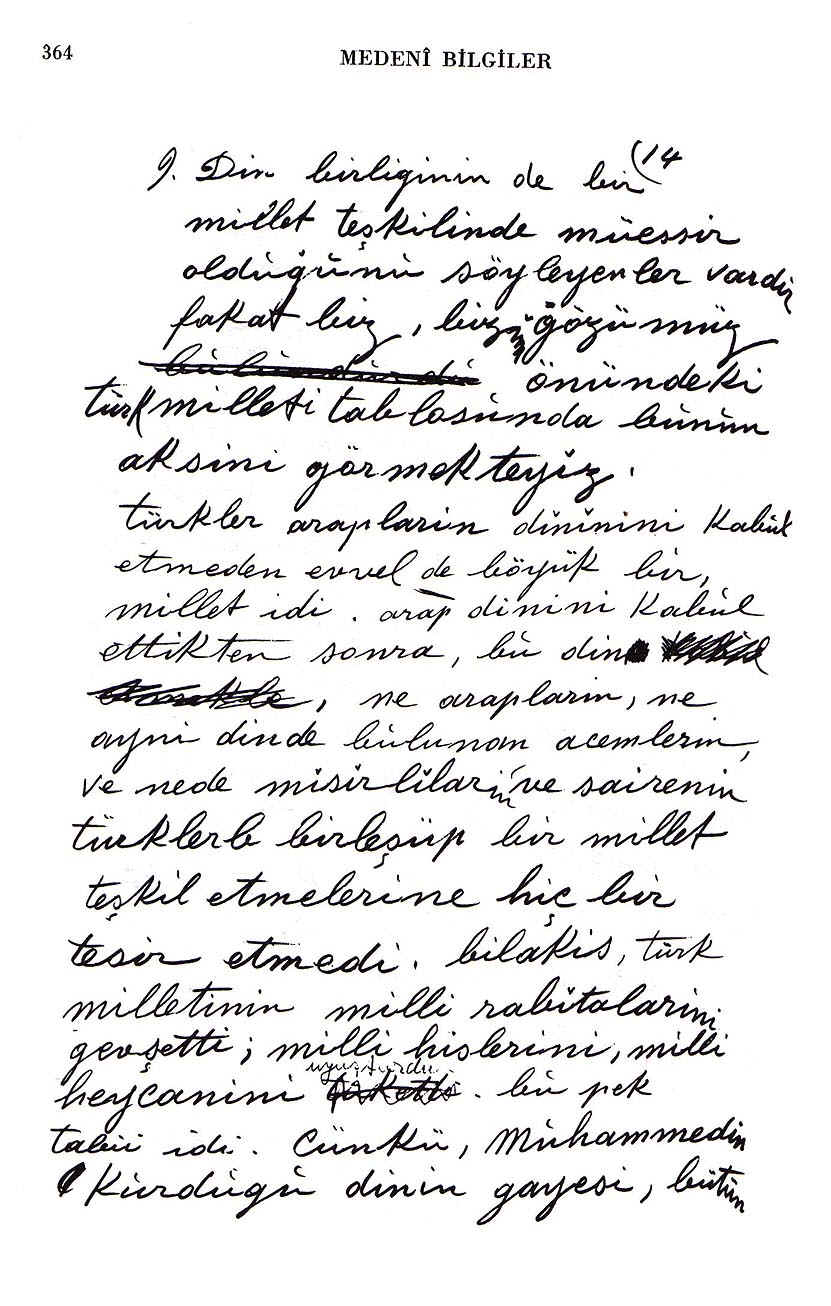 364
MEDENÎ BİLGİLER
(14
9. Din birliginin de bir
millet teşkilinde müessir
olduğunu söyleyenler vardır
fakat biz, bizim gözümüz
önündeki
türk milleti tablosunda bunun
aksini görmekteyiz.
türkler arapların dinini Kabul
etmeden evvel de böyük bir,
millet idi. arap dinini Kabul
ettikten sonra, bu din
, ne arapların, ne
ayni dinde bulunan acemlerin,
ve nede mısırlıların ve sairenin
türklerle birleşüp bir millet
teşkil etmelerine hiç bir
tesir etmedi. bilakis, türk
milletinin milli rabıtalarını
gevşetti; milli hislerini, milli
uyuşturdu.
heycanını . bu pek
tabii idi. Cünkü, Muhammedin
Kurduğu dinin gayesi, bütün